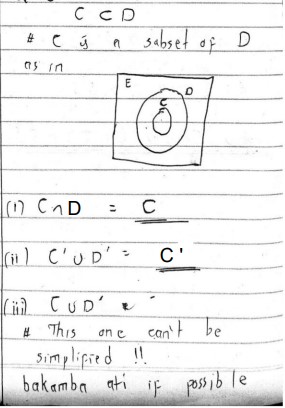 C ⊂ D
# C is a subset of D
as in
E
D
C
(i) C ∩ D = C
(ii) C' ∪ D' = C'
(iii) C ∪ D' =
# This one can't be
simplified !!
bakamba ati if possible